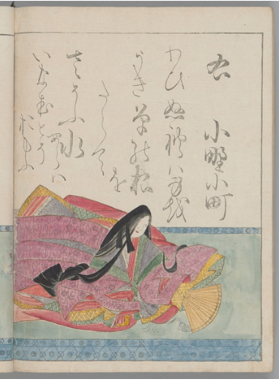 右
小野小町
わひぬれは身を
うき草の根
を
たえて
さそふ水
あらは
いなむとそ
おもふ